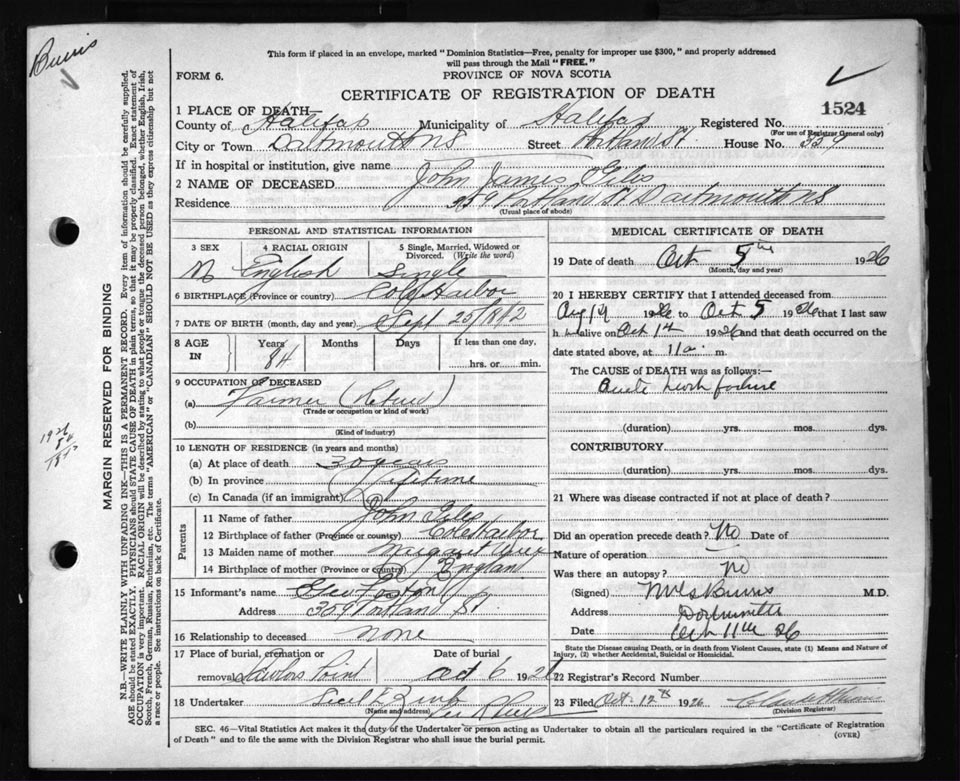 Burris
This form if placed in an envelope, marked "Dominion Statistics—Free, penalty for improper use $300," and properly addressed
will pass through the Mail "FREE."
FORM 6.
PROVINCE OF NOVA SCOTIA
CERTIFICATE OF REGISTRATION OF DEATH
1524
1 PLACE OF DEATH—
County of Halifax Municipality of Halifax Registered No.
(For use of Registrar General only)
City or Town Dartmouth NS Street Portland St. House No.
If in hospital or institution, give name
2 NAME OF DECEASED John James Giles
Residence 259 Portland St Dartmouth NS
(Usual place of abode)
PERSONAL AND STATISTICAL INFORMATION
3 SEX 4 RACIAL ORIGIN 5 Single, Married, Widowed or Divorced. (Write the word)
M English Single
6 BIRTHPLACE (Province or country) Cole Harbor
7 DATE OF BIRTH (month, day and year) Sept 25/1842
8 AGE IN Years Months Days If less than one day,
84 hrs. or min.
9 OCCUPATION OF DECEASED
(a) Farmer (Retired)
(Trade or occupation or kind of work)
(b)
(Kind of industry)
10 LENGTH OF RESIDENCE (in years and months)
(a) At place of death 30 years
(b) In province Lifetime
(c) In Canada (if an immigrant)
Parents
11 Name of father John Giles
12 Birthplace of father (Province or country) Cole Harbor
13 Maiden name of mother Margaret
14 Birthplace of mother (Province or country) England
15 Informant's name Geo
Address 259 Portland St.
16 Relationship to deceased none
17 Place of burial, cremation or Date of burial
removal Lawlors Point Oct 6 1926
18 Undertaker
(Name and address)
MEDICAL CERTIFICATE OF DEATH
19 Date of death Oct 5th 1926
(Month, day and year)
20 I HEREBY CERTIFY that I attended deceased from
Aug 19 1926 to Oct 5 1926 that I last saw
h alive on Oct 1926 and that death occurred on
date stated above, at 11 a. m.
The CAUSE of DEATH was as follows:—
Acute heart failure
(duration) yrs. mos. dys.
CONTRIBUTORY.
(duration) yrs. mos. dys.
21 Where was disease contracted if not at place of death?
Did an operation precede death? No Date of
Nature of operation
Was there an autopsy? no
(Signed) Burris M.D.
Address Dartmouth
Date Oct 11th 26
State the Disease causing Death, or in Death from Violent Causes, state (1) Means and Nature of
Injury, (2) whether Accidental, Suicidal or Homicidal.
22 Registrar's Record Number
23 Filed Oct 12th 1926
(Division Registrar)
SEC. 46—Vital Statistics Act makes it the duty of the Undertaker or person acting as Undertaker to obtain all the particulars required in the "Certificate of Registration
of Death" and to file the same with the Division Registrar who shall issue the burial permit.
(OVER)
MARGIN RESERVED FOR BINDING
N.B.—WRITE PLAINLY WITH UNFADING INK—THIS IS A PERMANENT RECORD. Every item of information should be carefully supplied.
AGE should be stated EXACTLY. PHYSICIANS should STATE CAUSE OF DEATH in plain terms, so that it may be properly classified. Exact statement of
OCCUPATION is very important. RACIAL ORIGIN will be described by stating to what people or tongue the deceased person belonged, whether English, Irish,
Scotch, French, German, Russian, Ruthenian, etc. The terms "AMERICAN" or "CANADIAN" SHOULD NOT BE USED as they express citizenship but not
a race or people. See instructions on back of Certificate.
1926
84
1842